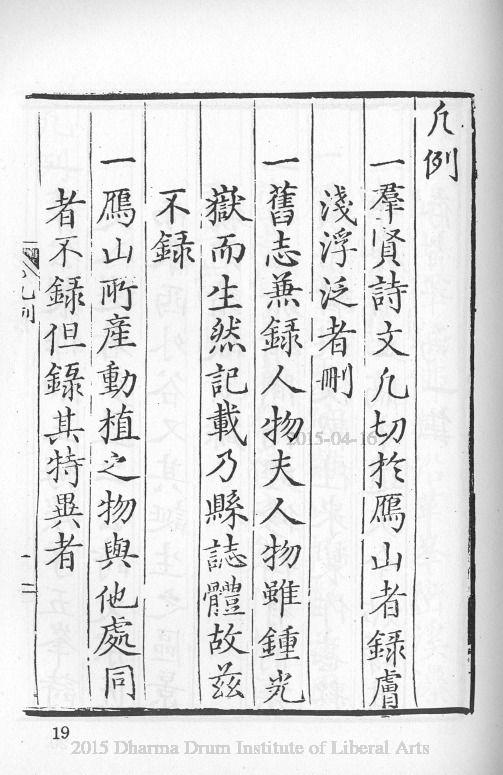 凡例
一羣賢詩文凡切於鴈山者錄膚
淺浮泛者刪
一舊志兼錄人物夫人物雖鍾光
嶽而生然記載乃縣誌體故茲
不錄
一鴈山所產動植之物與他處同
者不錄但錄其特異者
凡例
一
19
2015-04-16
2015 Dharma Drum Institute of Liberal Arts